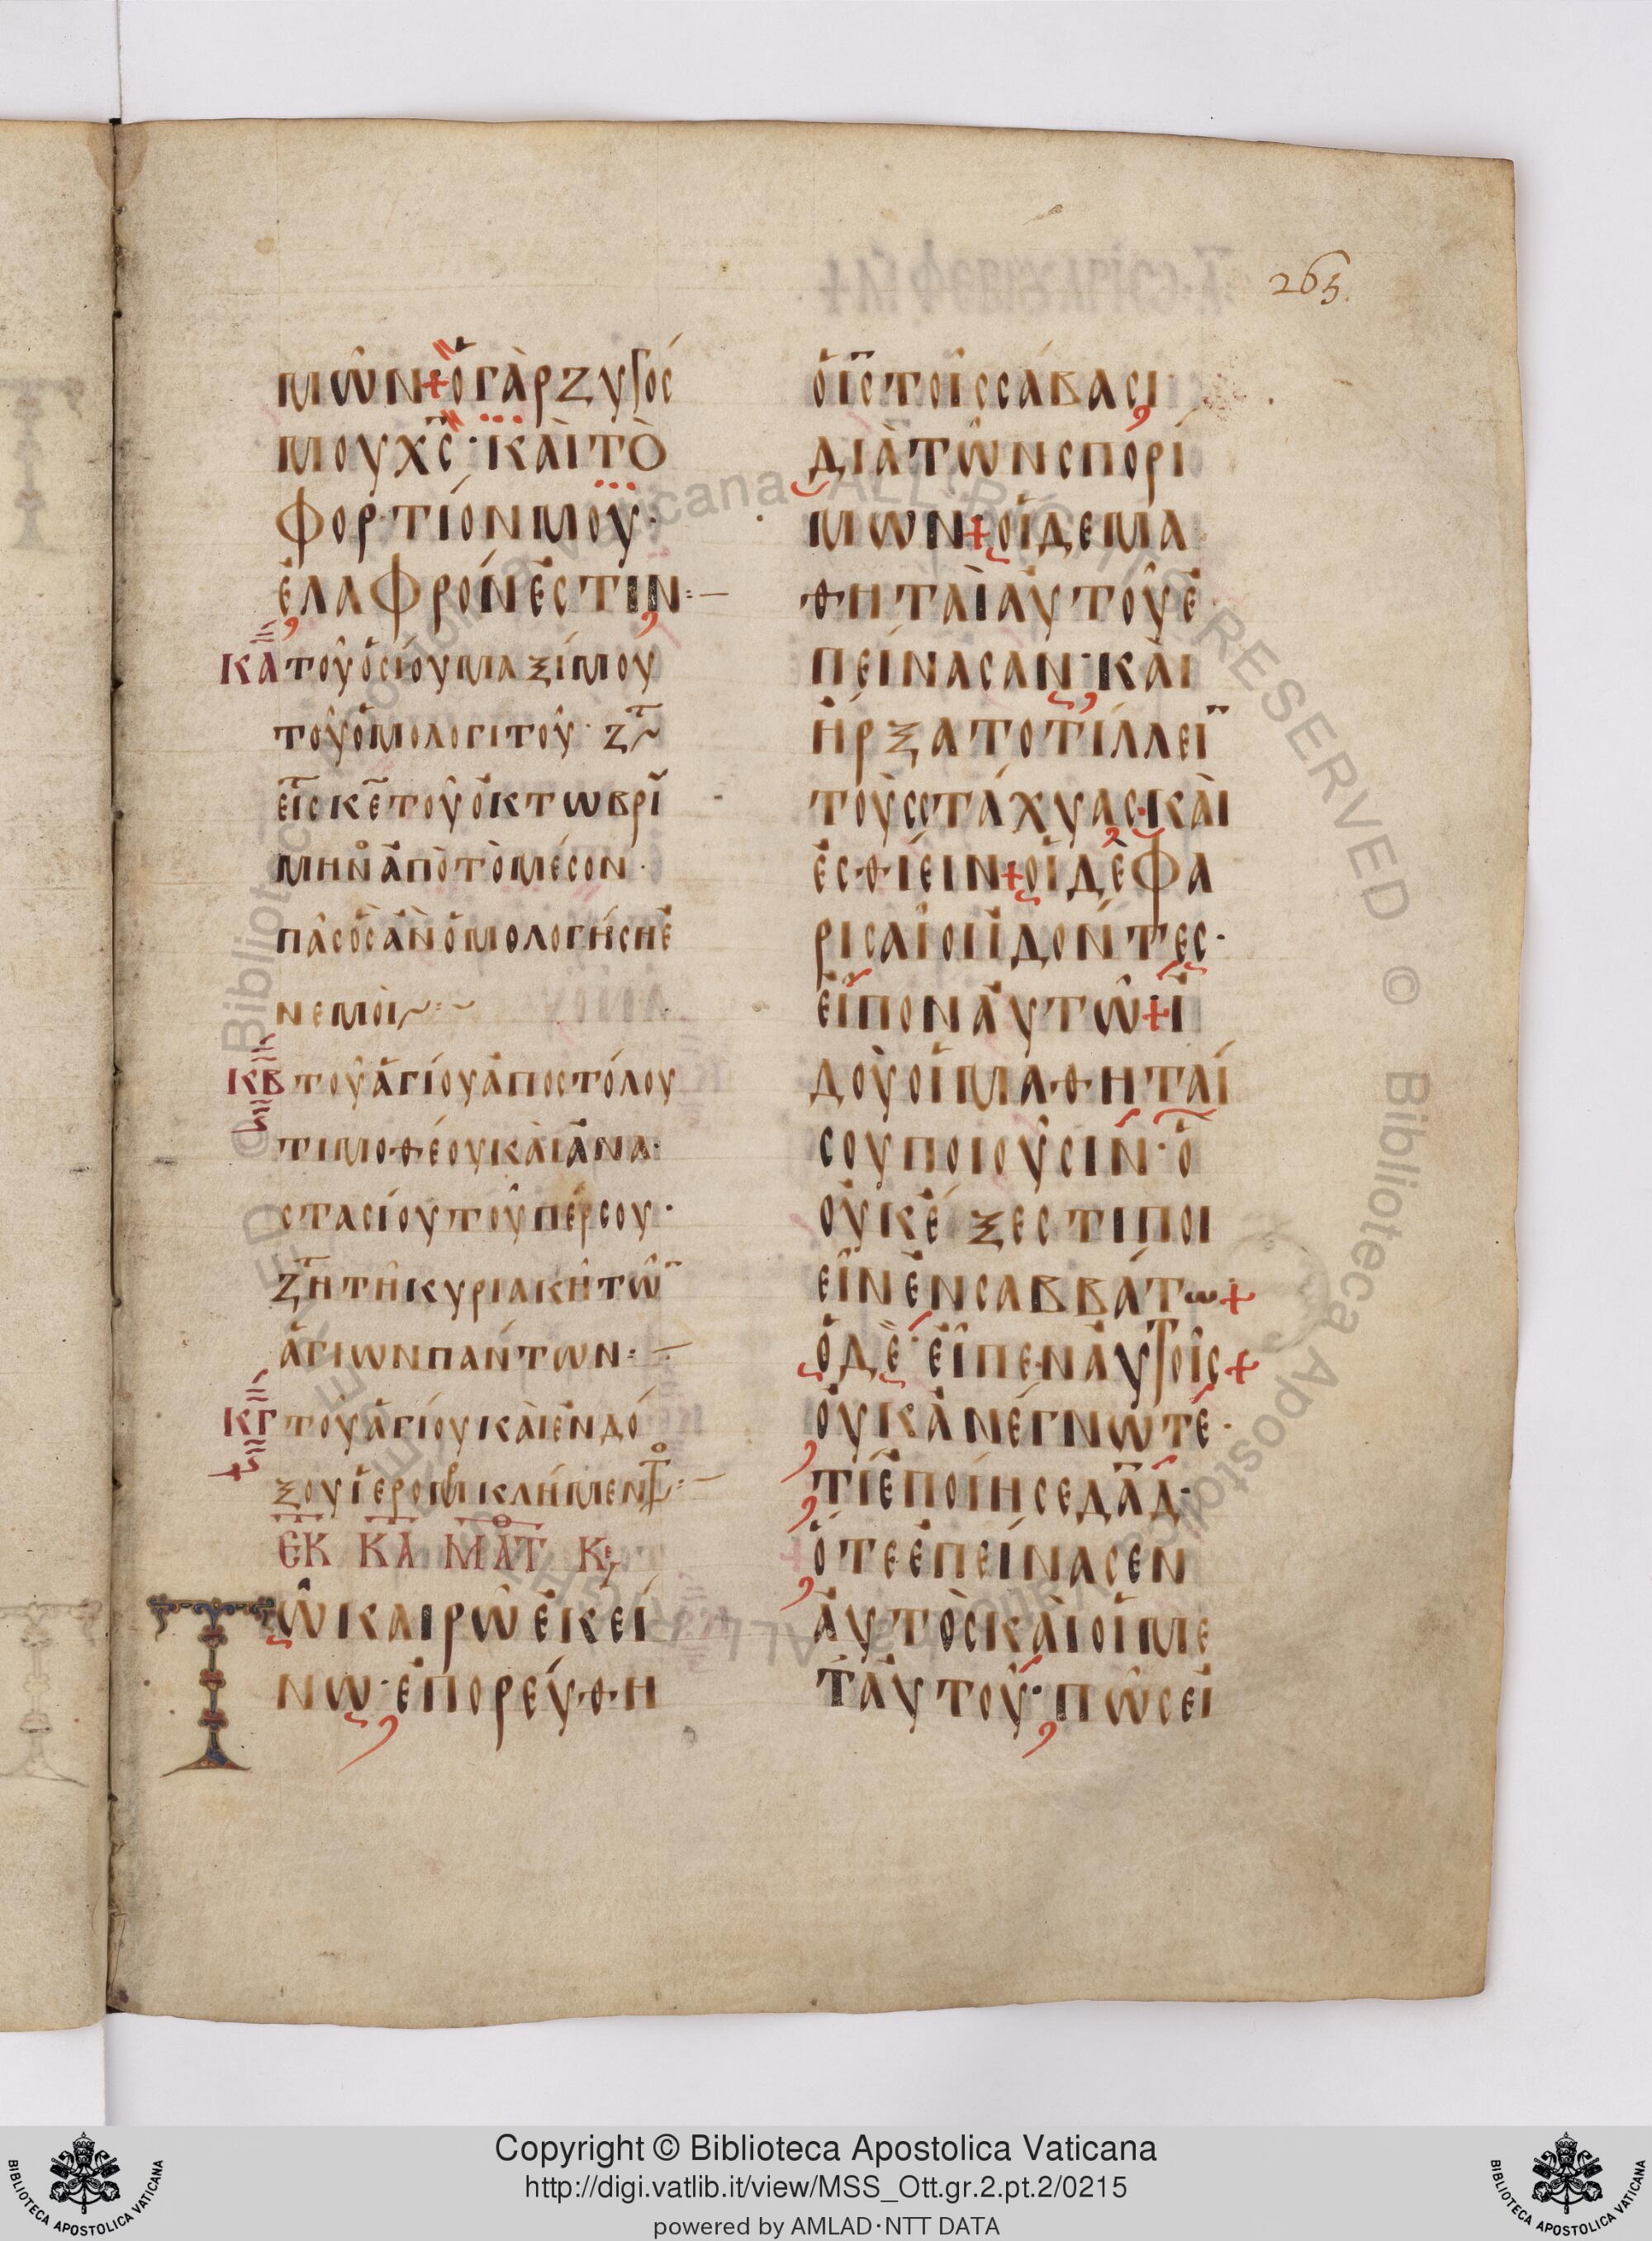 265.
μῶν + ὁ γὰρ ζυγὸσ
μου χς̄· καὶ τὸ
φορτίον μου·
ἐλαφρόν ἐστιν:—
ΚΑ τοῦ ὁσίου μαξίμου
τοῦ ὁμολογιτοῦ· ζητ
εἰσ κε τοῦ ὀκτωβρί
μην ἀπὸ τὸ μέσον·
πᾶσ ὃσ ἂν ὁμολογήση ἐ
ν ἐμοὶ
ΚΒ τοῦ ἁγίου ἀποστόλου
τιμοθέου καὶ ἀνα
στασίου τοῦ πέρσου·
ζητ τῆ κυριακῆ τῶ̄
ἁγίων πάντων:—
ΚΓ τοῦ ἁγίου καὶ ἐνδό
ξου ἱερομ κλήμεντ:—
ΕΚ ΚΑ ΜΑΤ Κε
Τῶ καιρῶ ἐκεί
νω· ἐπορεύθη
ὁ ις̄ τοῖσ σάβασι
διὰ τῶν σπορί
μων + οἱ δὲ μα
θηταὶ αὐτοῦ ἐ
πείνασαν· καὶ
ἤρξατο τίλλεῑ
τοὺσ στάχυασ· καὶ
ἐσθίειν + οἱ δὲ φα
ρισαῖοι ἰδόντεσ·
εἶπον αὐτῶ + ἰ
δοὺ οἱ μαθηταί
σου ποιοῦσιν· ὃ
οὐκ ἔξεστι ποι
εῖν ἐν σαββάτω +
ὁ δὲ· εἶπεν αὐτοῖσ +
οὐκ ἀνέγνωτε·
τί ἐποίησε δᾱδ·
ὅτε ἐπείνασεν
αὐτὸσ καὶ οἱ με
τ αὐτοῦ· πῶσ εἰ
Copyright © Biblioteca Apostolica Vaticana
http://digi.vatlib.it/view/MSS_Ott.gr.2.pt.2/0215
powered by AMLAD·NTT DATA
BIBLIOTECA APOSTOLICA VATICANA
BIBLIOTECA APOSTOLICA VATICANA